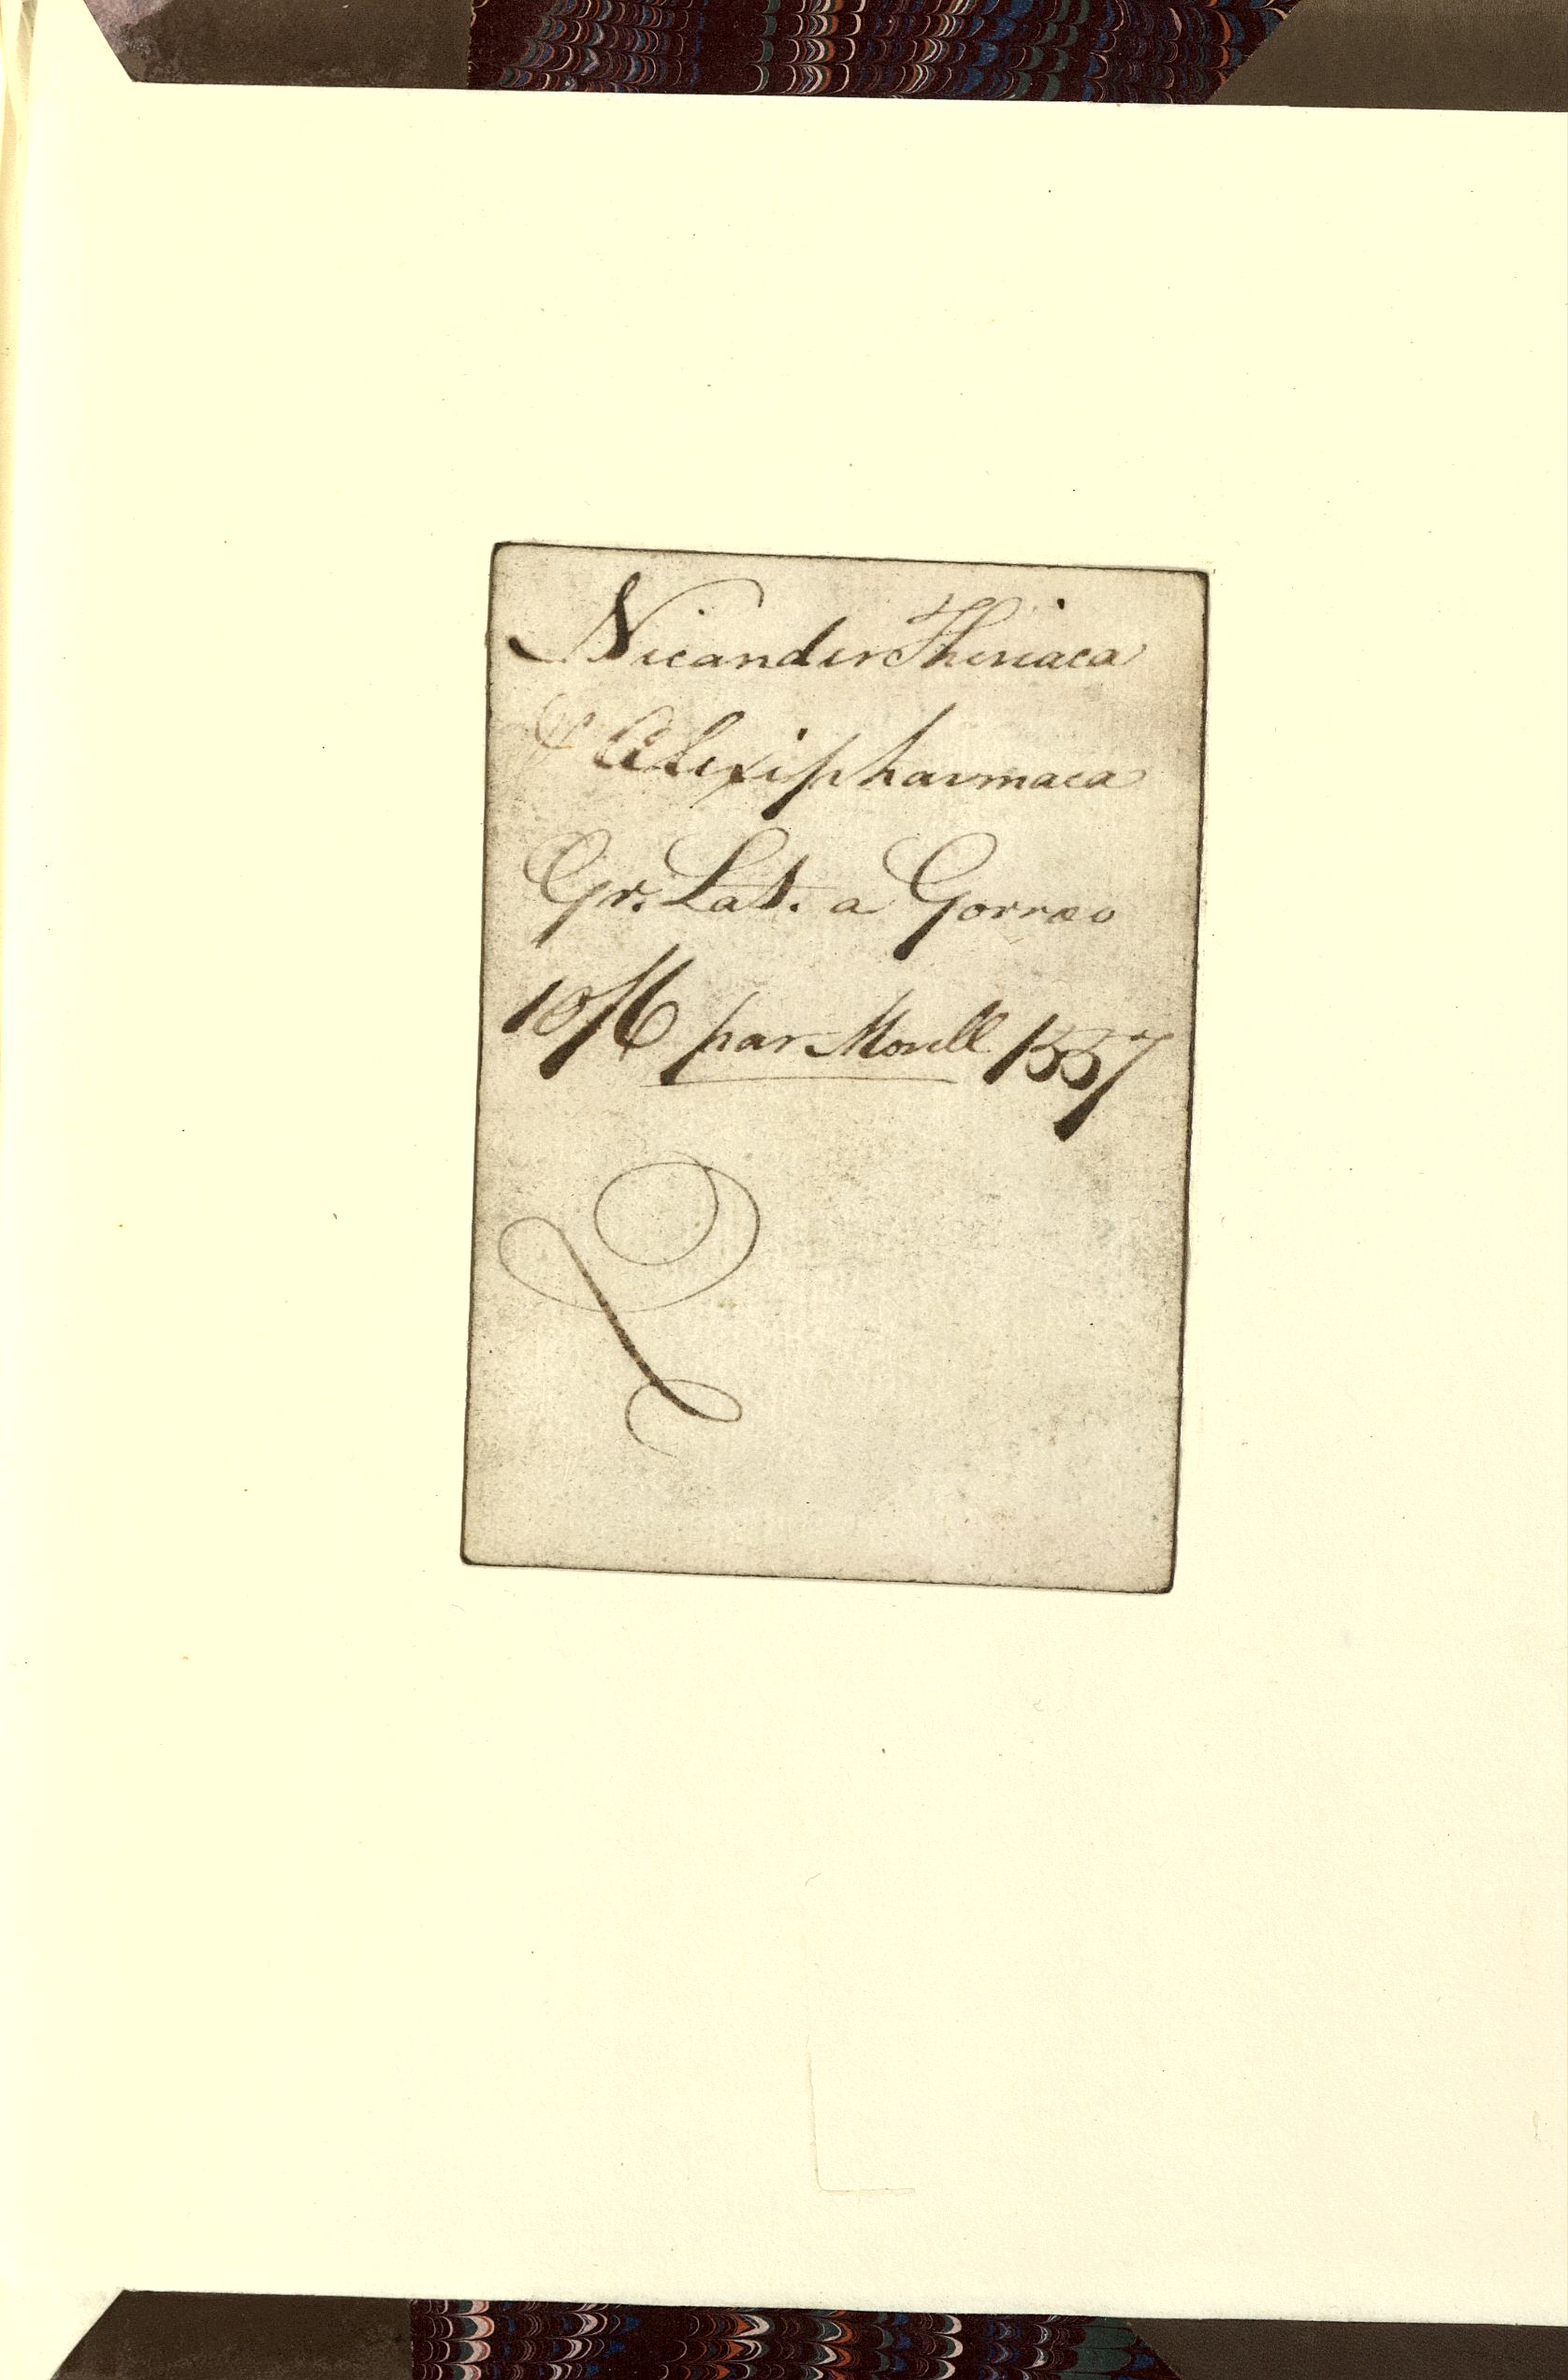 Nicander Theriaca
& Alexipharmaca
Gr. Lat. a Gorræo
10/6 par Morell 1557